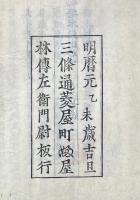 明暦元乙未歳吉旦
三條通菱屋町婬屋
林傳左衛門尉板行